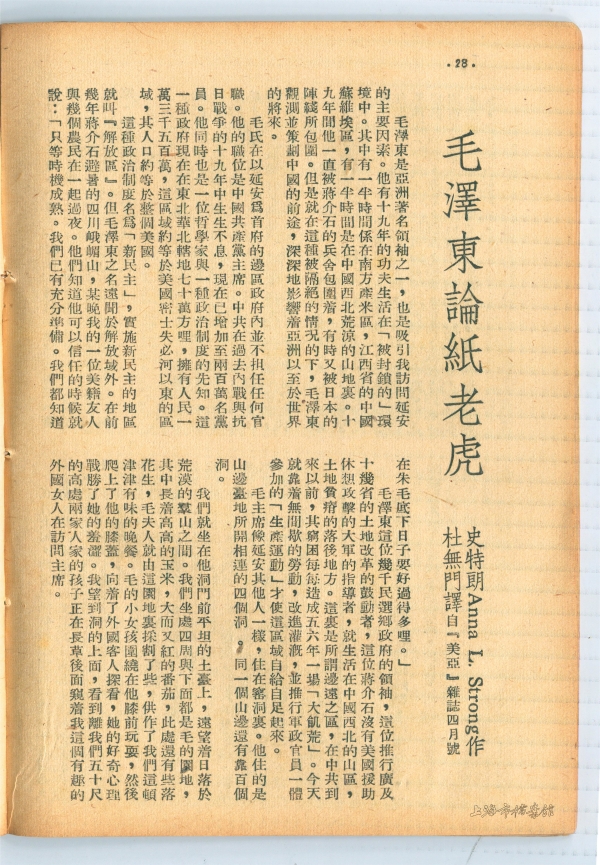 ·28·
毛澤東論紙老虎
史特朗Anna L. Strong作
杜無門譯自『美亞』雜誌四月號
毛澤東是亞洲著名領袖之一，也是吸引我訪問延安
的主要因素。他有十九年的功夫生活在「被封鎖的」環
境中。其中有一半時間係在南方產米區，江西省的中國
蘇維埃區，有一半時間是在中國西北荒涼的山地裏。十
九年間他一直被蔣介石的兵舍包圍着，有時又被日本的
陣綫所包圍。但是就在這種被隔絕的情况的下，毛澤東
觀測並策劃中國的前途，深深地影響着亞洲以至於世界
的將來。
毛氏在以延安爲首府的邊區政府內並不担任任何官
職。他的職位是中國共產黨主席。中共在過去內戰與抗
日戰爭的十九年中生生不息，現在已增加至兩百萬名黨
員。他同時也是一位哲學家與一種政治制度的先知。這
一種政府現在在東北華北轄地七十萬方哩，擁有人民一
萬三千五百萬，這區域約等於美國密士失必河以東的區
域，其人口約等於整個美國。
這種政治制度名爲「新民主」，實施新民主的地區
就叫『解放區』。但毛澤東之名遠聞於解放域外。在前
幾年蔣介石避暑的四川峨嵋山，某晚我的一位美籍友人
與幾個農民在一起過夜。他們知道他可以信任的時候就
說：「只等時機成熟。我們已有充分準備。我們都知道
在朱毛底下日子要好過得多哩。」
毛澤東這位幾千民選鄉政府的領袖，這位推行廣及
十幾省的土地改革的鼓動者，這位蔣介石沒有美國援助
休想攻擊的大軍的指導者，就生活在中國西北的山區，
土地貧瘠的落後地方。這裏是所謂邊遠之區，在中共到
來以前，其窮困每每造成五六年一場「大飢荒」。今天
就靠着無間歇的勞動，改進灌漑，並推行軍政官員一體
參加的「生產運動」才使這區域自給自足起來。
毛主席像延安其他人一樣，住在窰洞裏。他住的是
山邊臺地所開相連的四個洞。同一個山邊還有靠百個
洞。
我們就坐在他洞門前平坦的土臺上，遠望着日落於
荒漠的羣山之間。我們坐處四周與下面都是毛的園地，
其中長着高高的玉米，大而又紅的番茄，此處還有些落
花生，毛夫人就由這園地裏採割了些，供作了我們這頓
津津有味的晚餐。毛的小女孩圍繞在他膝前玩耍，然後
爬上了他的膝蓋，向着了外國客人探看，她的好奇心理
戰勝了她的羞澀。我望到洞的上面，看到離我們五十尺
的高處兩家人家的孩子正在長草後面窺着我這個有趣的
外國女人在訪問主席。
上海市檔案館